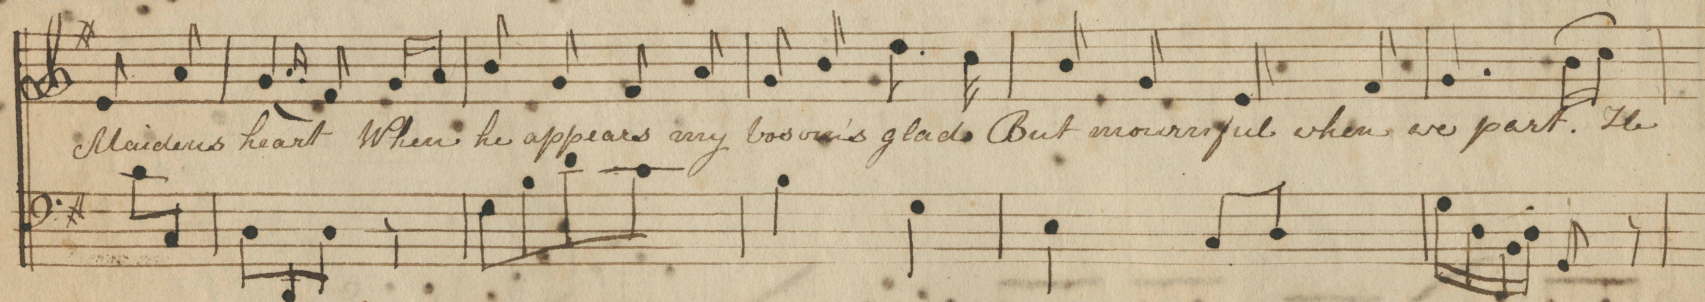 Maidens heart When he appears my bosom's glad But mournful when we part. He